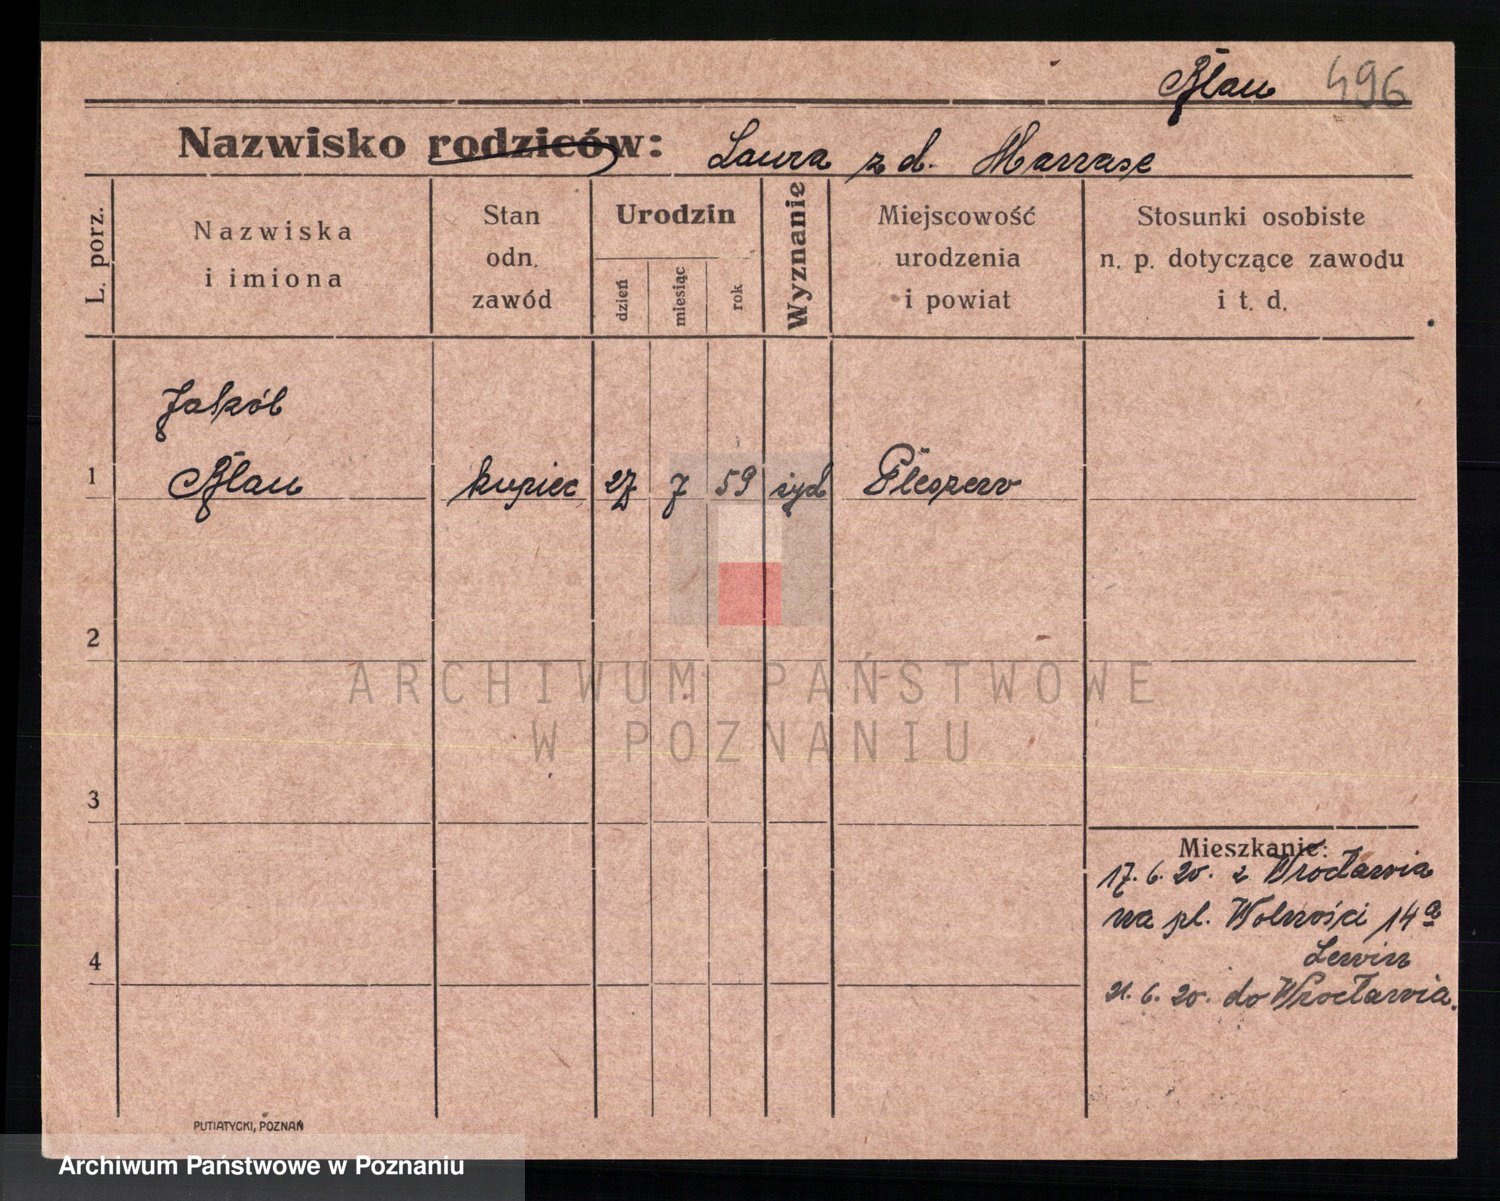 Blau 496
Nazwisko rodziców: Laura z d. Marrase
L. porz.
Nazwiska
i imiona
Stan
odn.
zawód
Urodzin
dzień
miesiąc
rok
Wyznanie
Miejscowość
urodzenia
i powiat
Stosunki osobiste
n. p. dotyczące zawodu
i t. d.
Jakób
1 Blau kupiec 27 7 59 żyd Pleszew
2
ARCHIWUM PAŃSTWOWE
W POZNANIU
3
Mieszkanie:
17. 6. 20. z Wrocławia
na pl. Wolności 14a
Lewin
4
21. 6. 20. do Wrocławia.
PUTIATYCKI, POZNAŃ
Archiwum Państwowe w Poznaniu